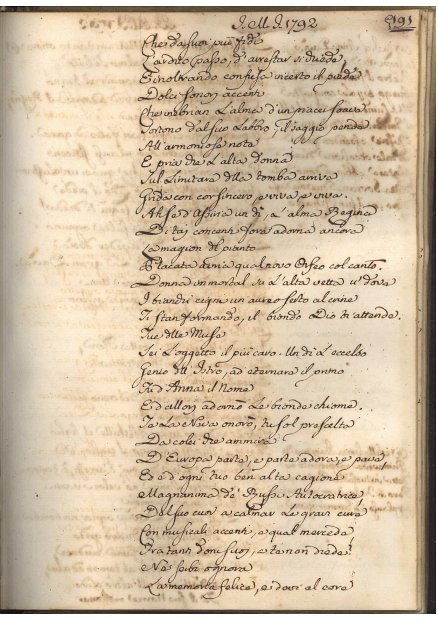 J. M. J. 1792
191
Che da suoi più
L'ardito passo, d'arrestar si vede,
E inoltrando confusa incerto il piede
Dolci sonori accenti
Che inebrian L'alme d'un piacer soave
Sortono dal suo Labbro, il saggio pende
All'armoniosa nota
E pria che L'alta donna
Sul Limitare della tomba arriva
Grida con cor sincero, e viva, e viva.
Ah se d'Assira un dì, L'alma Regina
Di taj concenti fora adorna ancora
La magion del pianto
Placata avria qual novo Orfeo col canto.
Donna immortal su L'alta vetta u' dova
I biondi cigne un aureo serto al crine
Ti stan formando, il biondo Dio ti attende.
Tu delle Muse
Sei L'oggetto il più caro. Un dì L'eccelso
Genio dell' Istro, ad eternare il primo
Fu d'Anna il Nome
E d'allori adornò Le bionde chiome.
Te La Neva onorò, tu sol prescelta
Da colei che ammira
D'Europa parte, e parte adora, e pave,
Ed è d'ogni tuo ben alta cagione
Magnanima de' Russi Autocratrice
Dal suo cuor a calmar Le gravi cure
Con musicali accenti, e qual mercede
Fra tanti doni suoj, e te non diede!
Ne serbi ognora
La memoria felice, e dasi al core